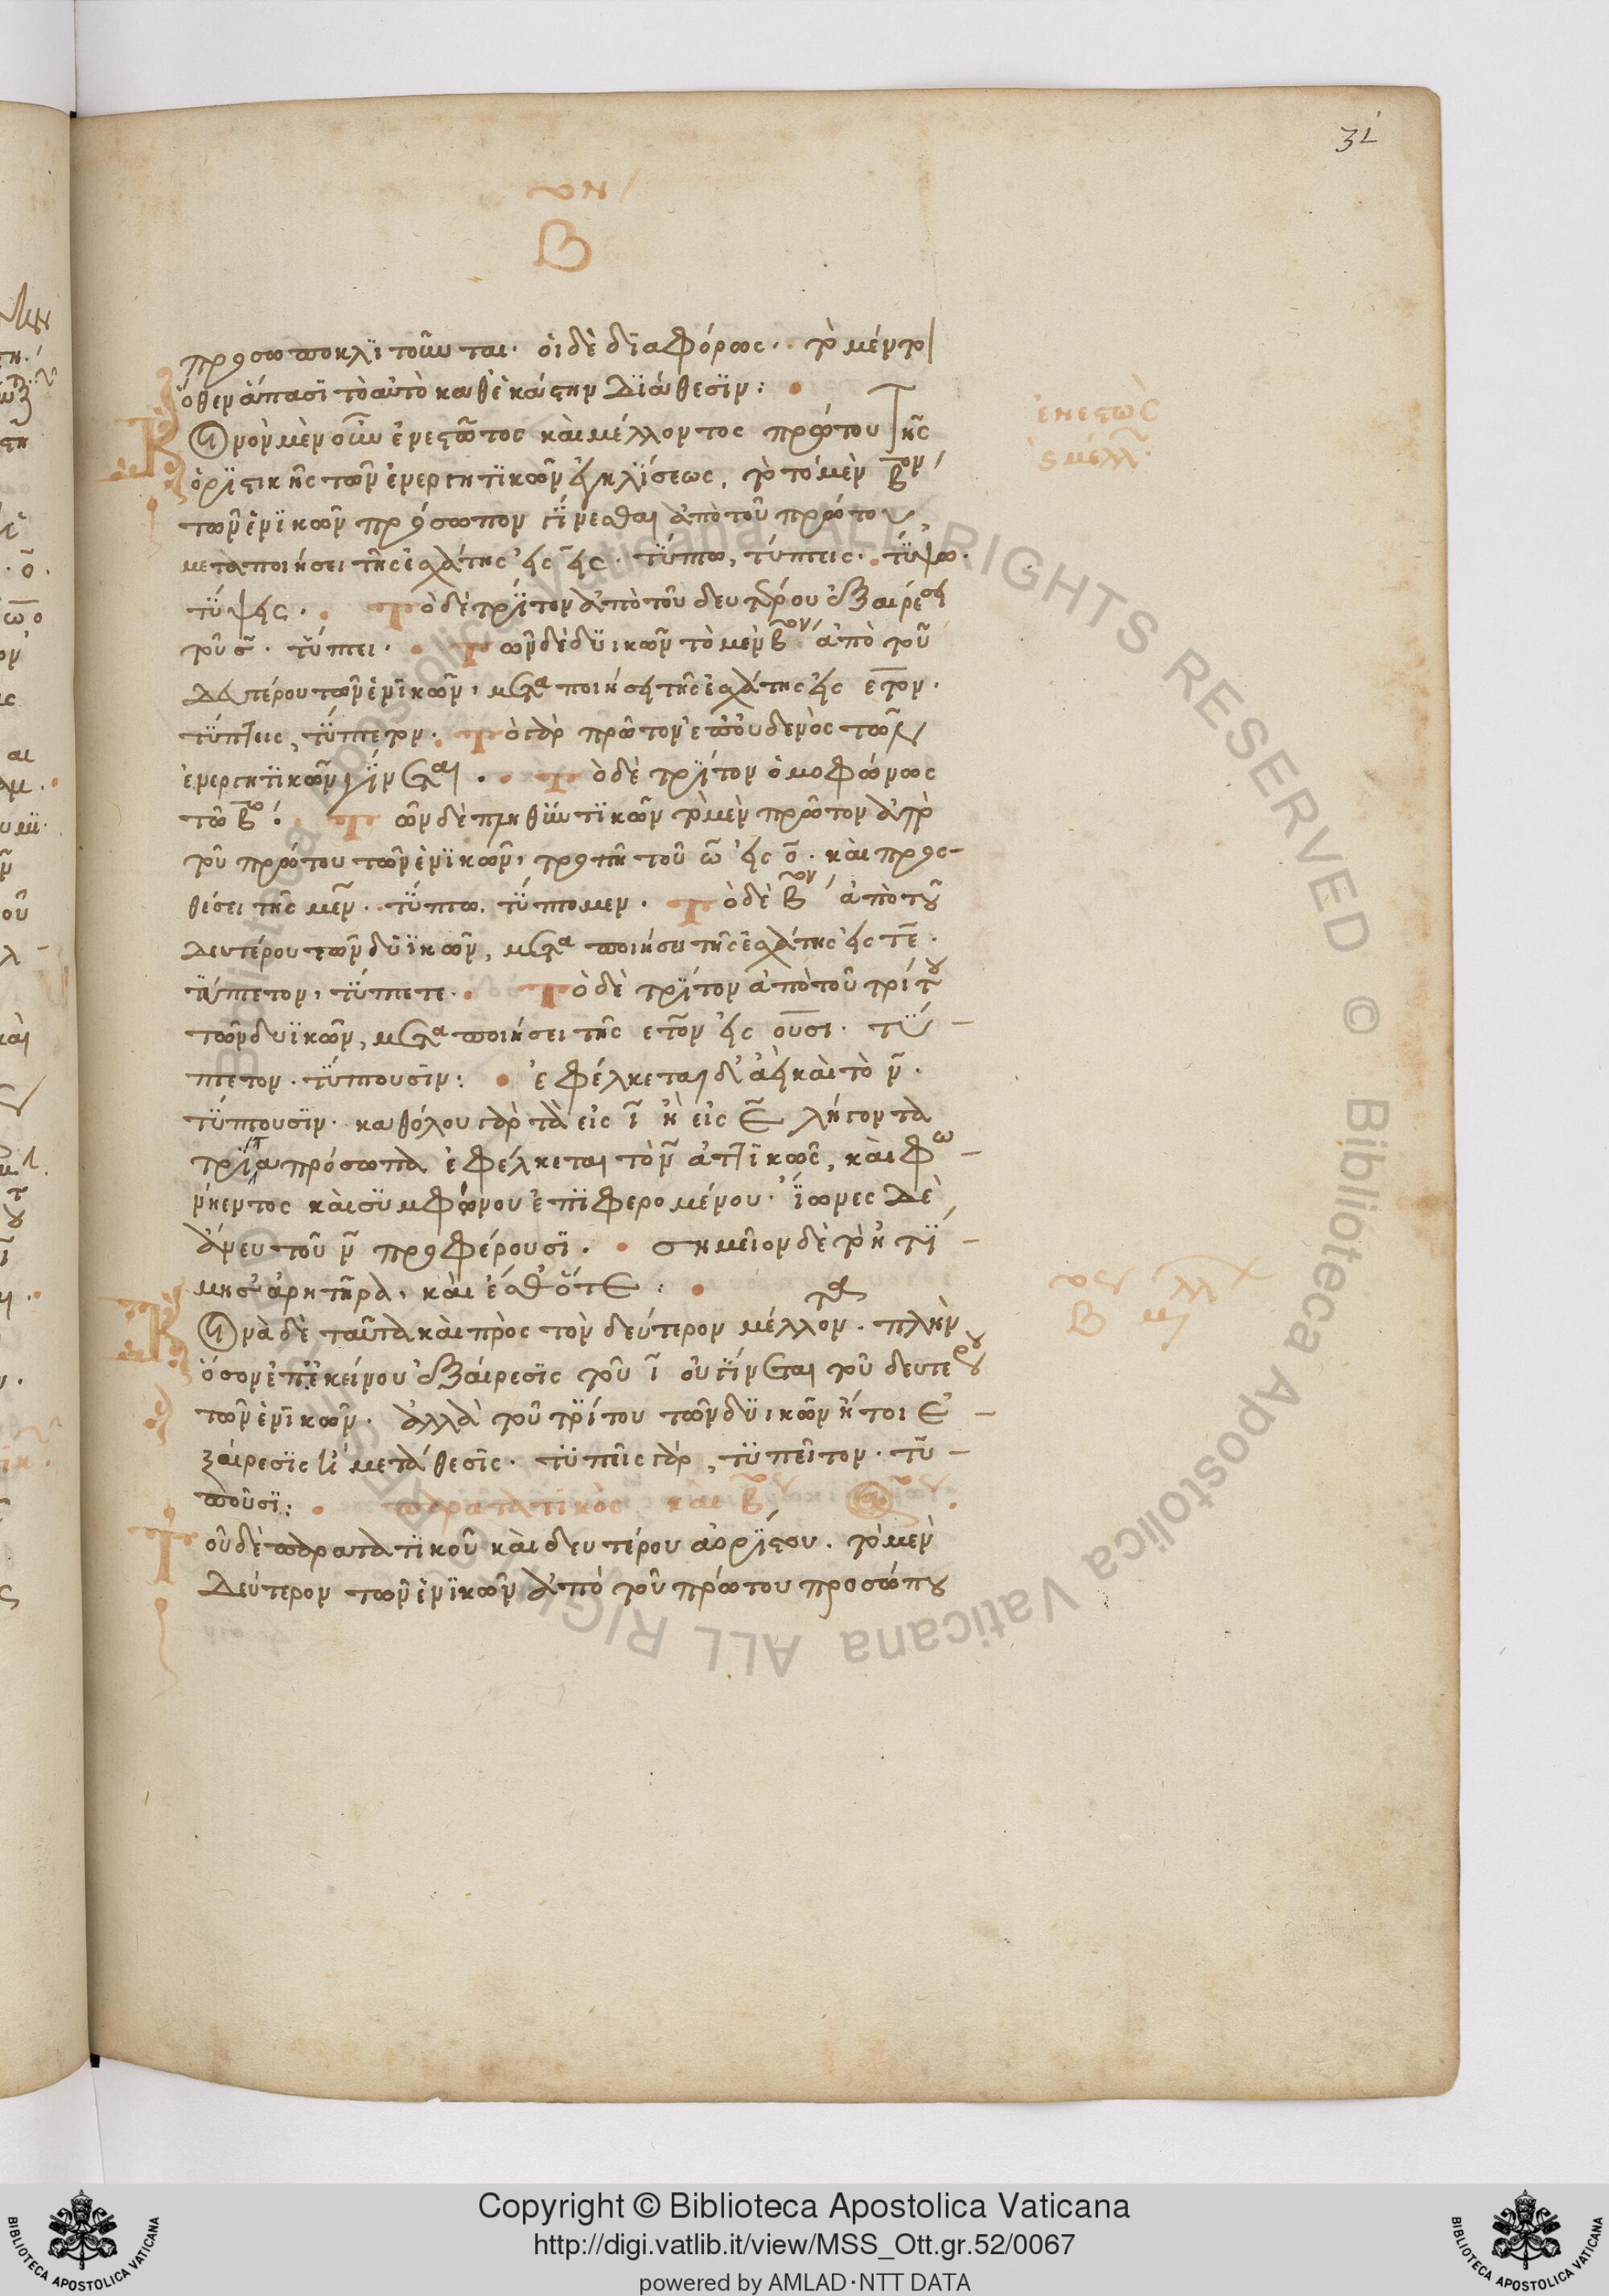 31
τον
Β
προσωποκλιτοῦνται. οἱ δὲ διαφόρως. τὸ μέντοι
ὅθεν ἅπασι τὸ αὐτὸ καθ' ἑκάστην διάθεσιν:
Κοινὸν μὲν οὖν ἐνεστῶτος καὶ μέλλοντος πρώτου τῆς
ἐνεστὼς
ς μέλλ.
ὁριστικῆς τῶν ἐνεργητικῶν ἐγκλίσεως, τὸ τὸ μὲν βον
τῶν ἑνικῶν πρόσωπον γίνεσθαι ἀπὸ τοῦ πρώτου
μεταποιήσει τῆς ἐσχάτης εἰς εις. τύπτω, τύπτεις. τύψω.
τύψεις. Τὸ δὲ τρίτον ἀπὸ τοῦ δευτέρου ἐξαιρέσει
τοῦ σ. τύπτει. Τῶν δὲ δυικῶν τὸ μὲν βον ἀπὸ τοῦ
δευτέρου τῶν ἑνικῶν, μεταποιήσει τῆς ἐσχάτης εἰς ετον.
τύπτεις, τύπτετον. Τὸ γὰρ πρῶτον ἐπ' οὐδενὸς τῶν
ἐνεργητικῶν γίνεται. Τὸ δὲ τρίτον ὁμοφώνως
τῶ βω. Τῶν δὲ πληθυντικῶν τὸ μὲν πρῶτον ἀπὸ
τοῦ πρώτου τῶν ἑνικῶν, τροπῆ τοῦ ω εἰς ο. καὶ προσ-
θέσει τῆς μεν. τύπτω. τύπτομεν. Τὸ δὲ βον ἀπὸ τοῦ
δευτέρου τῶν δυϊκῶν, μεταποιήσει τῆς ἐσχάτης εἰς τε.
τύπτετον, τύπτετε. Τὸ δὲ τρίτον ἀπὸ τοῦ τρίτου
τῶν δυϊκῶν, μεταποιήσει τῆς ετον εἰς ουσι. τύ-
πτετον. τύπτουσιν: ἐφέλκεται δ' ἀεὶ καὶ τὸ ν.
τύπτουσιν. καθόλου γὰρ τὰ εἰς ι ἢ εἰς ε λήγοντα
τρίτα πρόσωπα ἐφέλκεται τὸ ν ἀττικῶς, καὶ φω-
νήεντος καὶ συμφώνου ἐπιφερομένου. ἴωνες δὲ
ἄνευ τοῦ ν προφέρουσι. σημεῖον δὲ τὸ ἠτί-
μησ' ἀρητῆρα, καὶ ἔσθ' ὅτε:
Κοινὰ δὲ ταῦτα καὶ πρὸς τὸν δεύτερον μέλλοντα. πλὴν
του
Β μελλ
ὅσον ἐπ' ἐκείνου ἐξαίρεσις τοῦ ι οὐ γίνεται τοῦ δευτέρου
τῶν ἑνικῶν. ἀλλὰ τοῦ τρίτου τῶν δυϊκῶν ἤτοι ἐ-
ξαίρεσις ἢ μετάθεσις. τυπεῖς γὰρ, τυπεῖτον. τυ-
ποῦσι: παρατατικὸς καὶ βου
Τοῦ δὲ παρατατικοῦ καὶ δευτέρου ἀορίστου. τὸ μὲν
δεύτερον τῶν ἑνικῶν ἀπὸ τοῦ πρώτου προσώπου
Copyright © Biblioteca Apostolica Vaticana
http://digi.vatlib.it/view/MSS_Ott.gr.52/0067
powered by AMLAD·NTT DATA